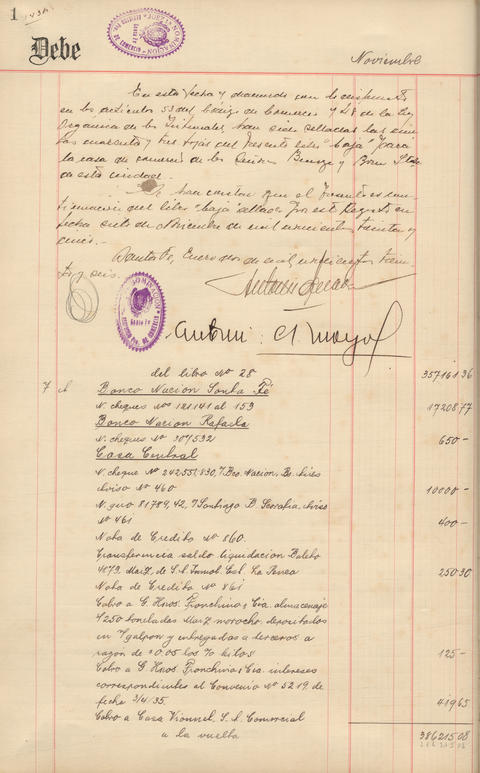 1
Debe
Noviembre
En esta fecha y de acuerdo con lo dispuesto
en los artículos 53 del Código de Comercio y 48 de la Ley
Orgánica de los Tribunales, han sido selladas las
cuarenta y tres fojas del presente libro "Caja" para
la casa de comercio de los Señores Bunge y Born Ltda
de esta ciudad.
Se hace constar que el presente es con-
tinuación del libro "Caja" sellado por este Registro en
fecha siete de Diciembre de mil novecientos treinta y
cinco.
Santa Fe, Enero dos de mil novecientos trein-
ta y seis.
del libro Nº 28 35716136
7 A Banco Nacion Santa Fé
N. cheques nos 121141 al 153 1720877
Banco Nacion Rafaela
N. cheques Nº 307532 650-
Casa Central
N. cheque Nº 242551/830, 7 Bco. Nacion, Bs. Aires
aviso Nº 460 10000-
N. giro 81789, 42, 7 Santiago B. aviso
Nº 461 400-
Nota de Credito Nº 860.
Transferencia saldo liquidacion Boleto
4173. Maiz. de S. A. Inmob. Est. La Pensa 25030
Nota de Credito Nº 861
Cobro a G. Hnos. Franchino & Cia. almacenaje
4250 toneladas Maiz morocho depositados
en 7 galpon y entregadas a terceros a
razon de $ 0.05 los % kilos 125-
Cobro a G. Hnos. Franchino & Cia. intereses
correspondientes al Convenio Nº 5219 de
fecha 3/4/35. 41965
Cobro a Casa Vionnet S. A. Comercial
a la vuelta 38621508